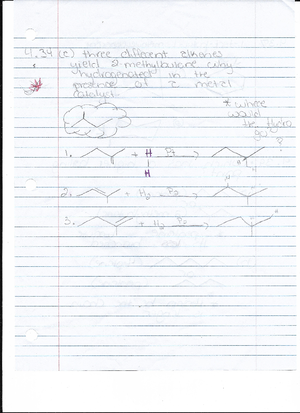 4.34 (c) three different alkenes
yield 2-methylbutane when
hydrogenated in the
presence of a metal
catalyst.
* where
would
the Hydro
go
?
1. + H Pt
H
2. + H2 Pt
H
3. + H2 Pt
H